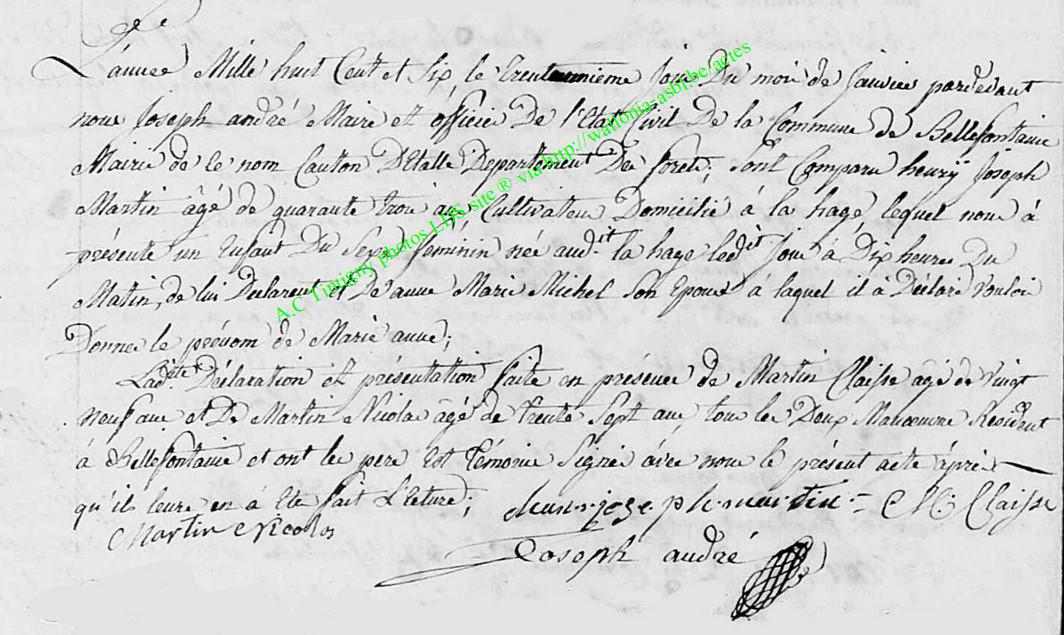 L'année Mille huit Cent et Six, le trenteunnième Jour Du moi de Janvier pardevant
nous Joseph andré Maire et officier De l'Etat Civil De la Commune de Bellefontaine
Mairie de ce nom Canton D'Etalle Departement De forets; sont Comparu henry Joseph
Martin âgé de quarante troi ans Cultivateur Domicilié à la hage lequel nous à
présenté un Enfant Du Sexe féminin née audit la hage ledit Jour à Dix heures Du
Matin, de lui Declarent et De anne Marie Michel Son Epouse à laquel il à Déclaré Vouloir
Donner le prénom de Marie anne;
Ladite Déclaration et présentation faite en présence de Martin Claisse âgé de Vingt
neuf ans et De Martin Nicolas âgé de trente Sept ans, tous les Deux Manoeuvre Resident
à Bellefontaine et ont les pere Est Témoins Signé avec nous le présent acte aprèt
qu'ils leurs en à Eté fait L'eture;
henri josep h martin M: Claisse
Martin Nicolas
Joseph andré
A.C Tintigny photos LDS site ® via http://wallonia-asbl.be/actes